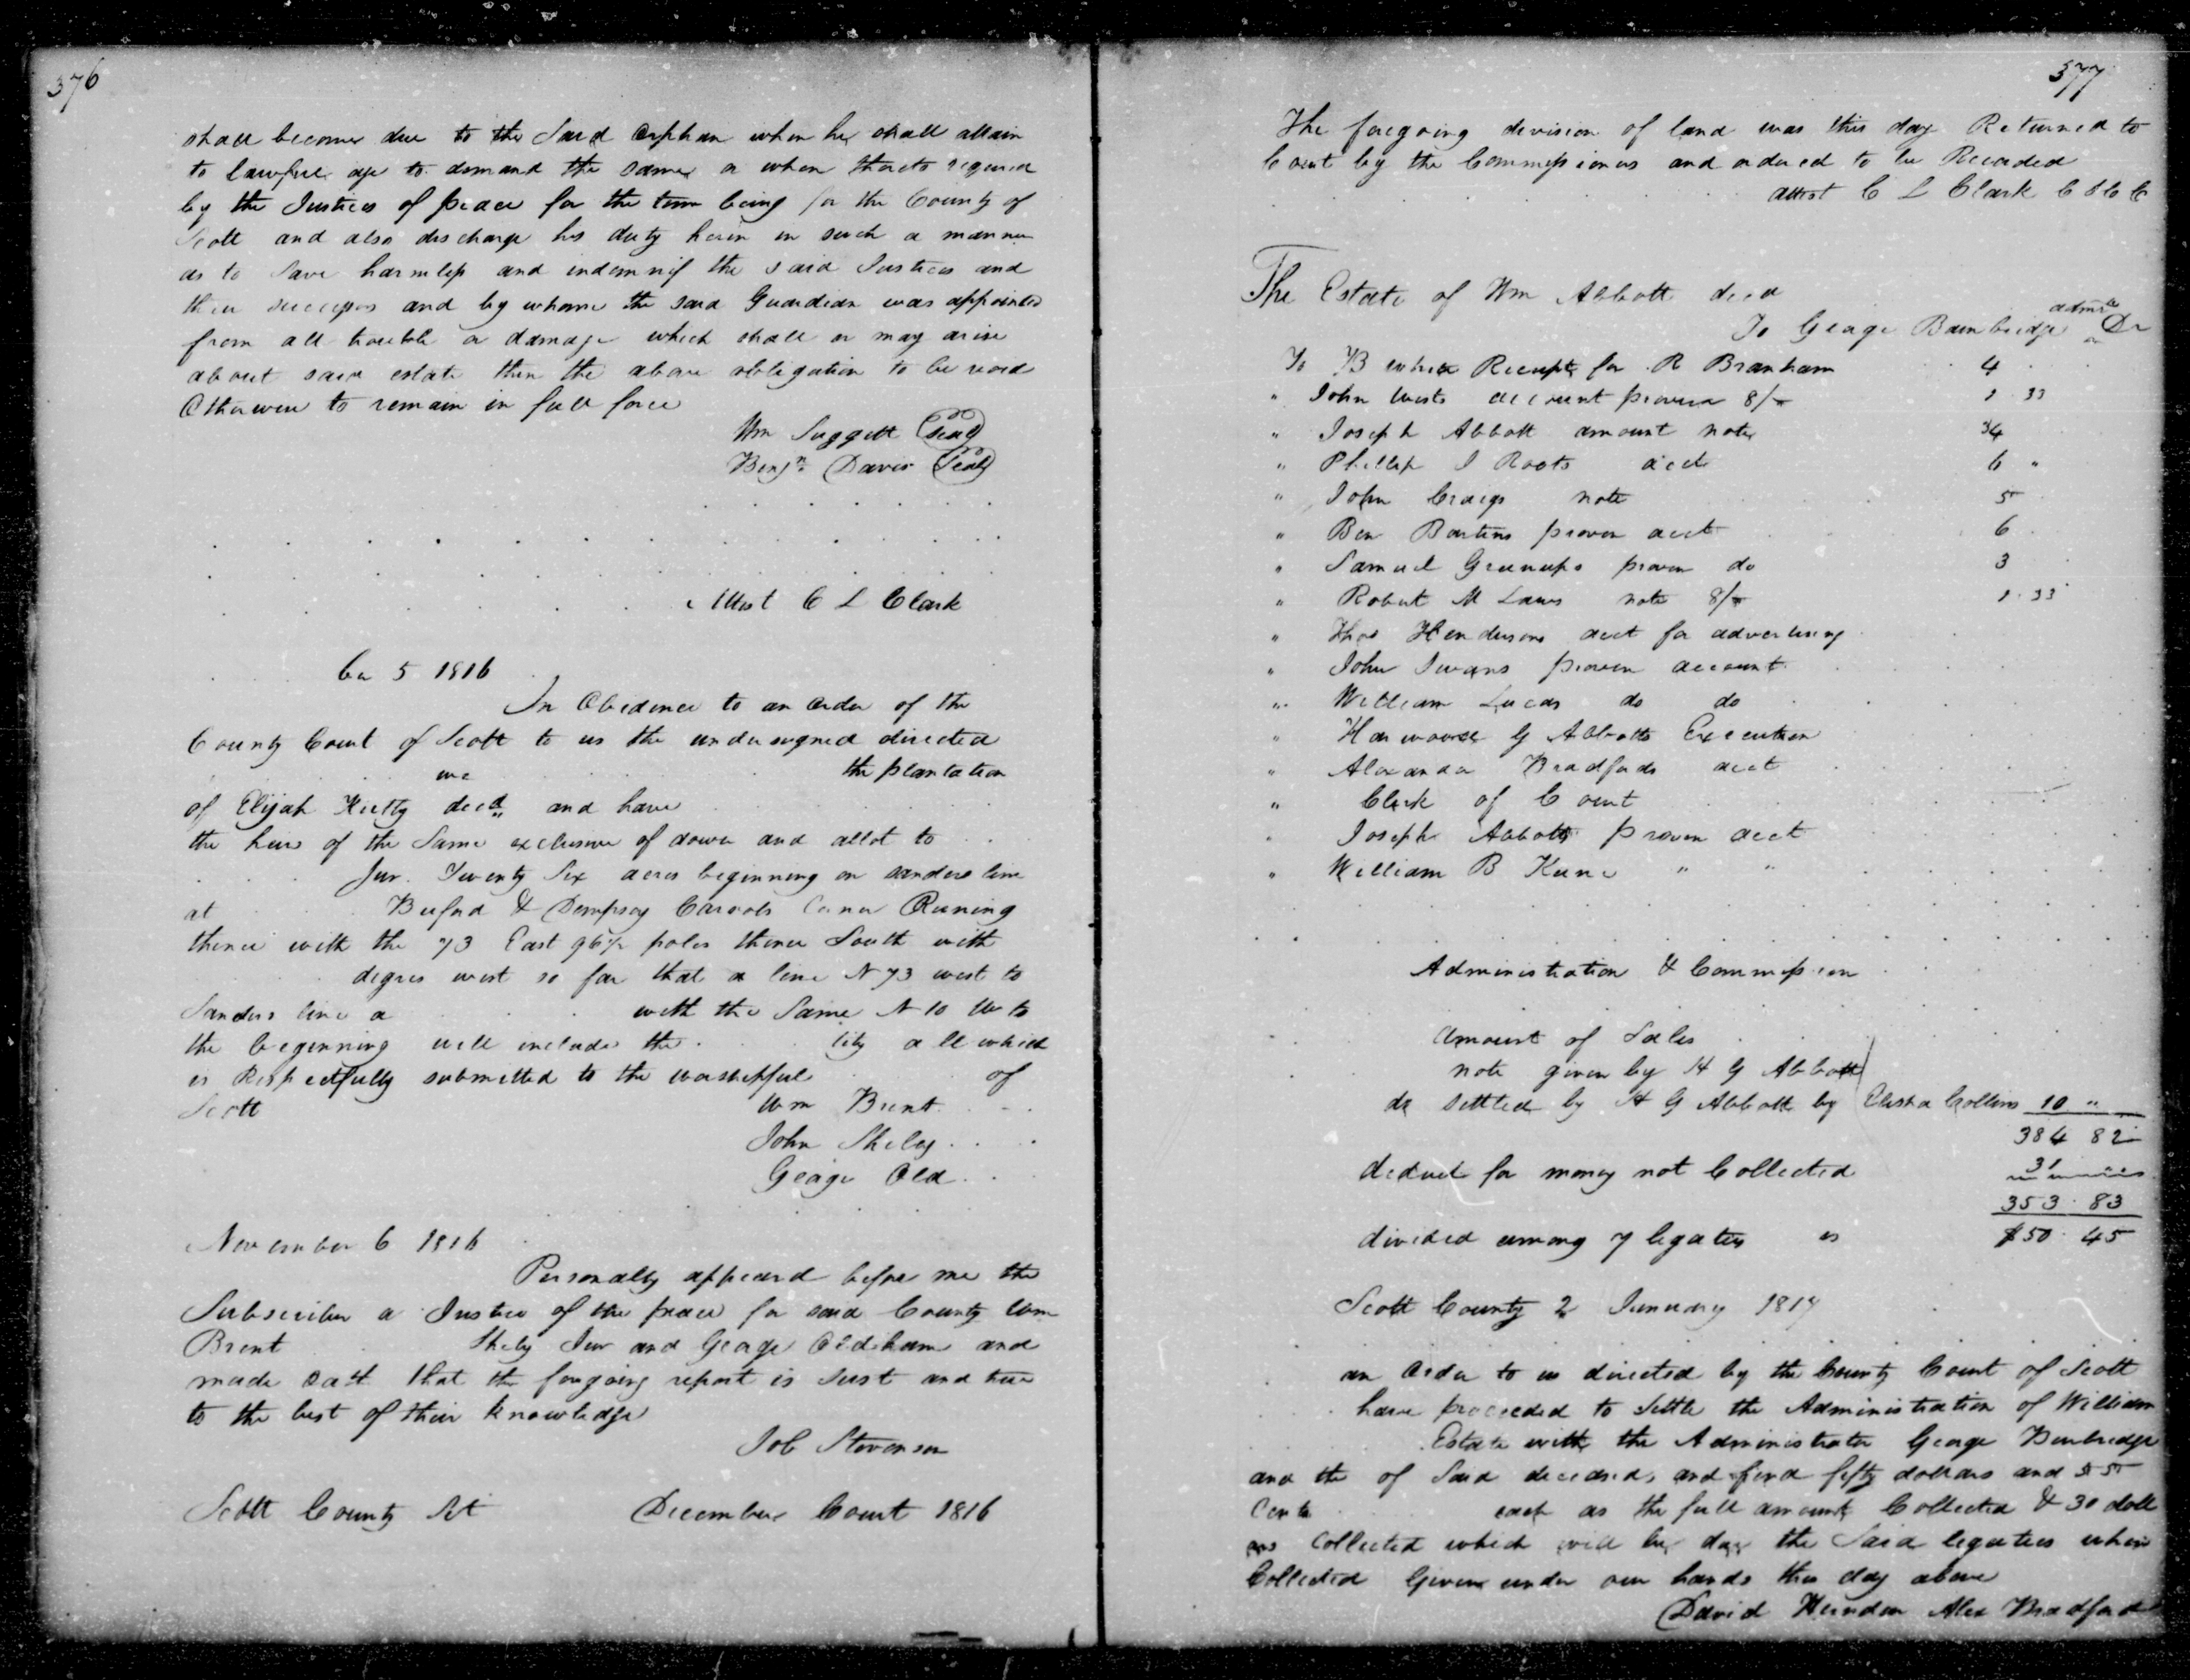 376
shall become due to the Said Orphan when he shall attain
to lawfull age to demand the same or when thereto required
by the Justices of peace for the time being for the County of
Scott and also discharge his duty herein in such a manner
as to Save harmless and indemnif the said Justices and
their successors and by whome the said Guardian was appointed
from all trouble or damage which shall or may arise
about said estate then the above obligation to be void
Otherwise to remain in full force
Wm Suggett (Seal)
Benjn. Davis (Seal)
Attest C L Clark
5 1816
In Obedience to an order of the
County Court of Scott to us the undersigned directed
we the plantation
of Elijah decd and have
the heirs of the Same exclusive of dower and allot to
Jur. Twenty Six acres beginning on Sanders line
at Buford & Dempsey Carrols Corner Runing
thence with the 73 East 96½ poles thence South with
degres west so far that a line N 73 west to
Sanders line a with the Same N 10 W to
the beginning will include the tity all which
is Respectfully submitted to the worshipfull of
Scott Wm Brent
John Shely
George Old
November 6 1816
Personally appeard before me the
Subscriber a Justice of the peace for said County Wm
Brent Shely Jur and George Oldham and
made oath that the forgoing report is Just and true
to the best of their knowledge
Job Stevenson
Scott County Sct December Court 1816
377
The foregoing division of land was this day Returned to
Court by the Commissioners and ordered to be Recorded
attest C L Clark C S C C
The Estate of Wm Abbott decd
To George Bainbridge admr Dr
To B white Receipt for R Branham 4
" John Wests account proven 8/ 1 33
" Joseph Abbott amount note 34
" Phillip J Roots acct 6 "
" John Craigs note 5
" Ben Bartens proven acct 6
" Samuel Greenups proven do 3
" Robert M Laws note 8/ 1 33
" Thos Hendersons acct for advertising
" John proven account
" William Lucas do do
" Harwood G Abbotts Execution
" Alexander Bradfords acct
" Clerk of Court
" Joseph Abbotts proven acct
" William B " "
Administration & Commission
amount of Sales
note given by H G Abbott
do settled by H G Abbott by Elisha Collins 10 "
384 82
deduct for money not Collected 31
353 83
divided among 7 legatees is $50 45
Scott County 2 January 1817
an order to us directed by the County Court of Scott
have proceeded to Settle the Administration of William
Estate with the Administrator George Benbredge
and the of Said deceased, and find fifty dollars and 55
Cents each as the full amount Collected & 30 doll
ars Collected which will be day the Said legatees when
Collected Given under our hands the day above
David Herndon Alex Bradford